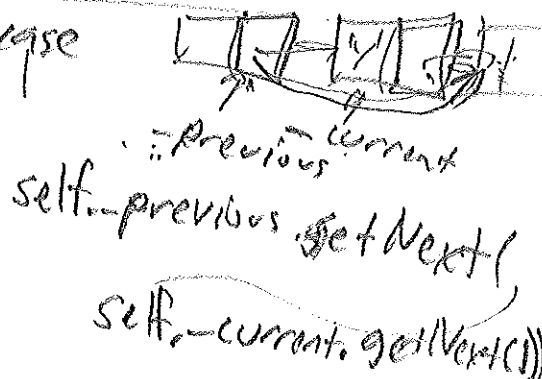 case
previous current
self._previous.setNext(
self._current.getNext()))